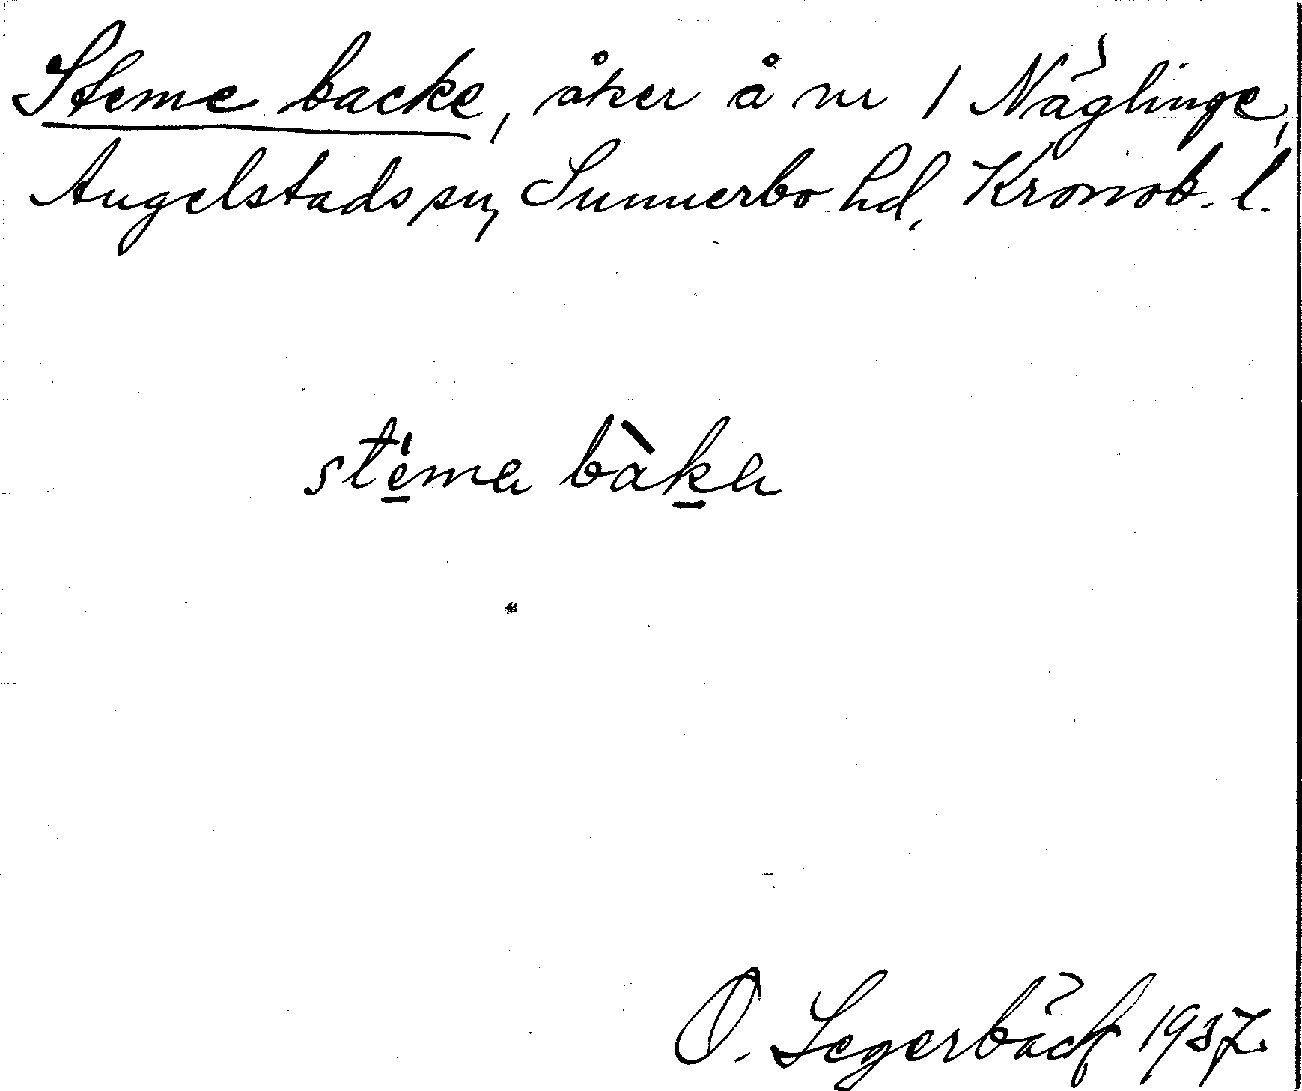 Steme backe, åker å nr 1 Näglinge,
Angelstads sn, Sunnerbo hd, Kronob. l.
stema baka
O. Segerbäck 1937.